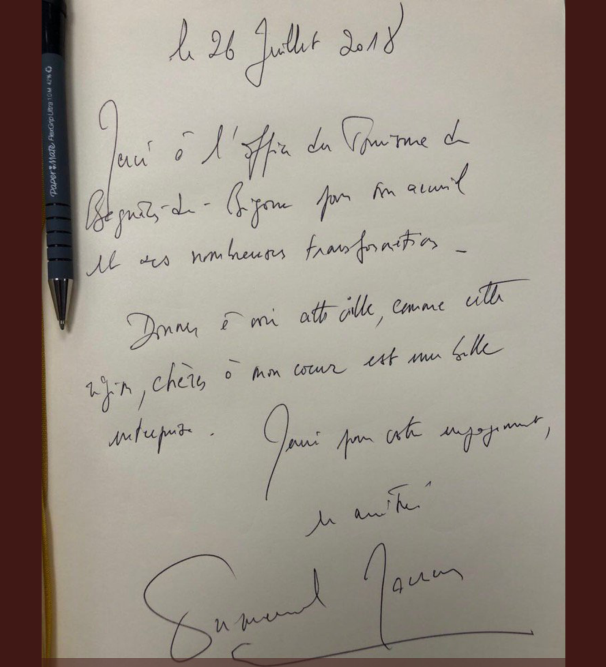 le 26 Juillet 2018
Merci à l'office du Tourisme de
Bagnères-de-Bigorre pour son accueil
et ses nombreuses transformations -
Donner à voir cette ville, comme cette
région, chères à mon coeur est une belle
entreprise. Merci pour votre engagement,
en amitié
Emmanuel Macron
PaperMate